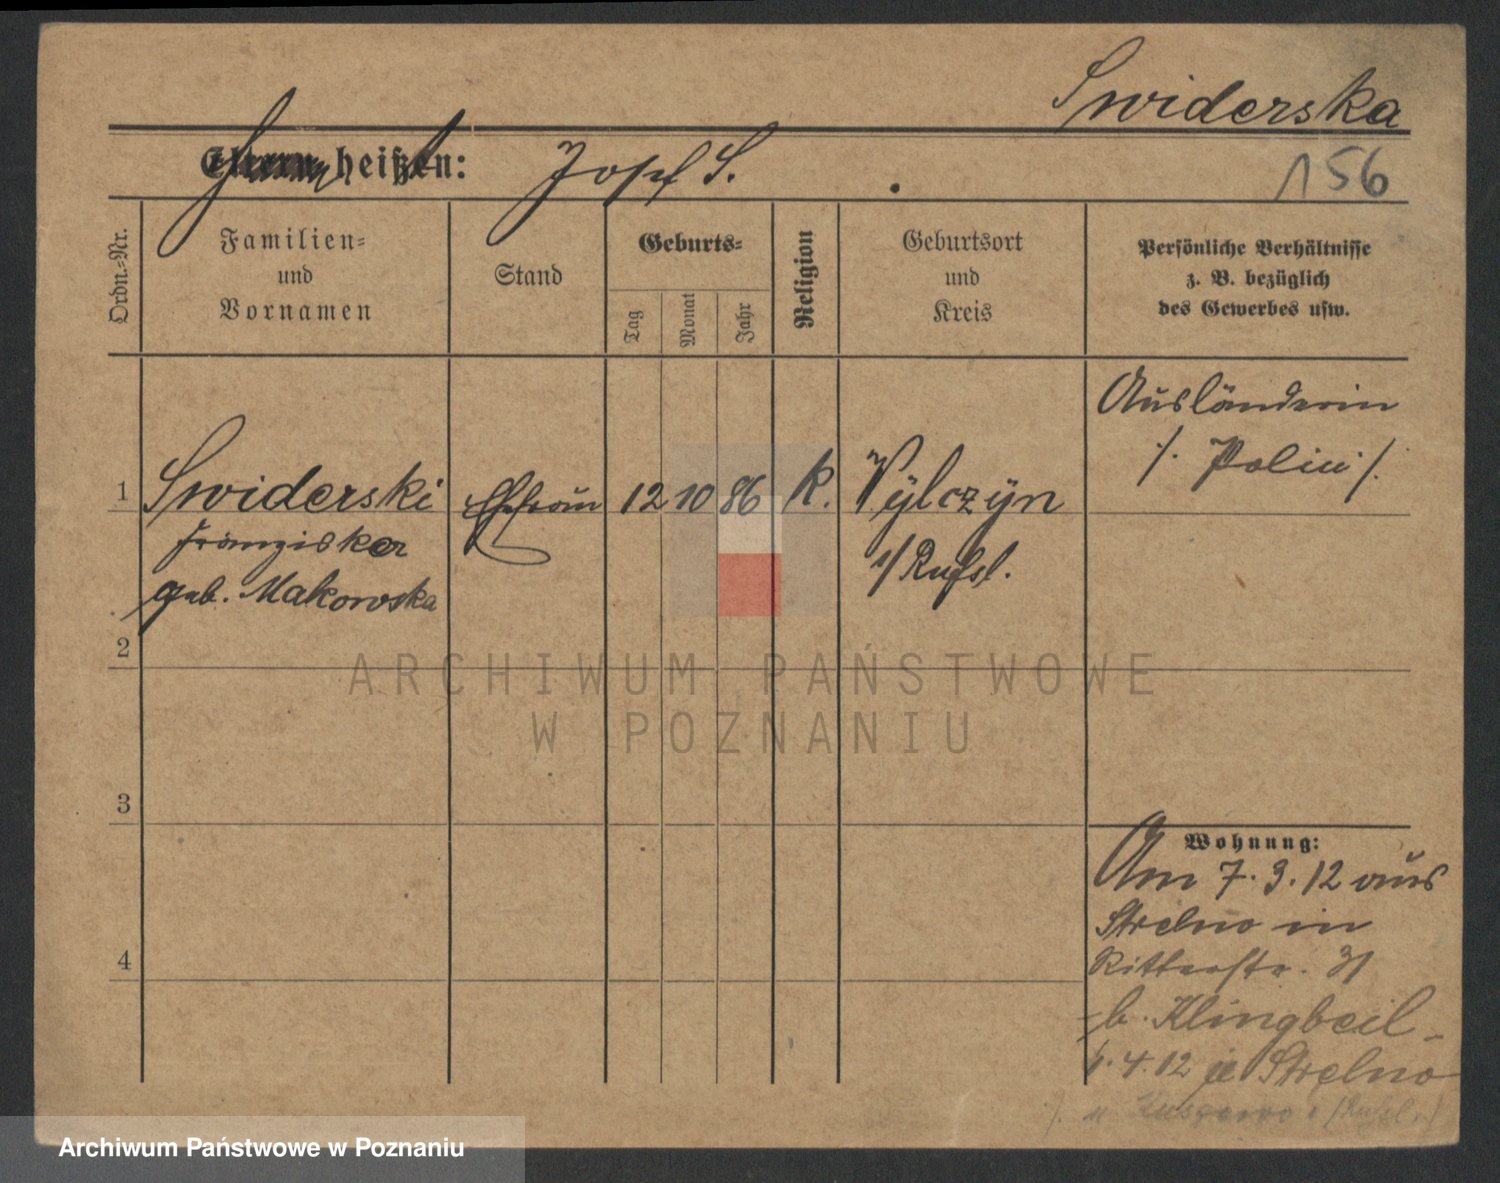 Swiderska
Eltern heißen: Josef S.
156
Ordn.-Nr.
Familien-
und
Vornamen
Stand
Geburts-
Tag
Monat
Jahr
Religion
Geburtsort
und
Kreis
Persönliche Verhältnisse
z. B. bezüglich
des Gewerbes usw.
Ausländerin
/. Polin ./.
1 Swiderski Ehefrau 12 10 86 k. Wylczyn
Franziska i/Rußl.
geb. Makowska
2
ARCHIWUM PAŃSTWOWE
W POZNANIU
3
Wohnung:
Am 7.3.12 aus
Strelno in
Ritterstr. 31
b. Klingbeil -
1.4.12 Strelno
4
Archiwum Państwowe w Poznaniu